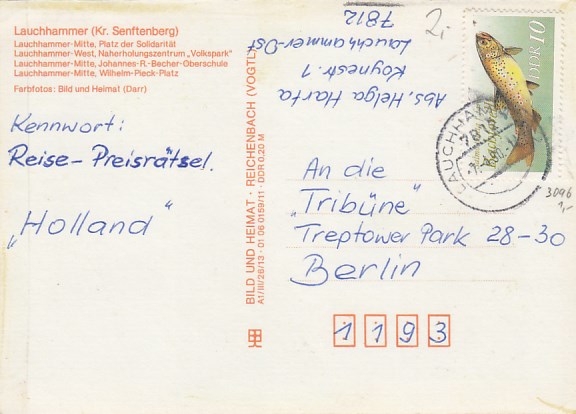 Lauchhammer (Kr. Senftenberg)
Lauchhammer-Mitte, Platz der Solidarität
Lauchhammer-West, Naherholungszentrum „Volkspark“
Lauchhammer-Mitte, Johannes-R.-Becher-Oberschule
Lauchhammer-Mitte, Wilhelm-Pieck-Platz
Farbfotos: Bild und Heimat (Darr)
Kennwort:
Reise-Preisrätsel.
„Holland“
BILD UND HEIMAT · REICHENBACH (VOGTL)
A1/III/26/13 · 01 06 0159/11 · DDR 0,20 M
Abs. Helga Harta
Koynestr. 1
Lauchhammer-Ost
7812
2,-
DDR 10
LAUCHHAMMER
7812
3096
1,-
An die
„Tribüne“
Treptower Park 28-30
Berlin
1193